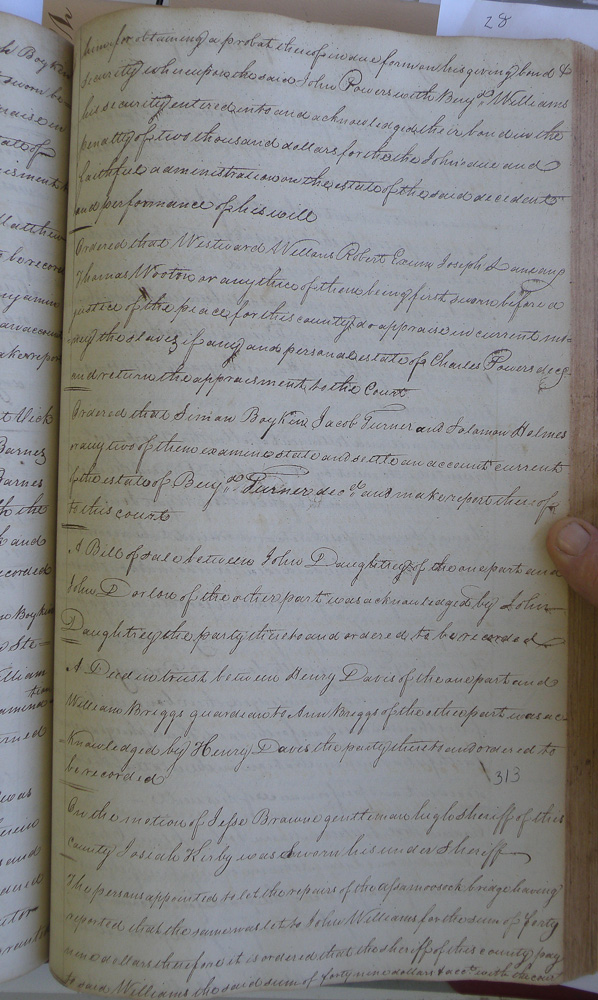 28
him for obtaining a probat thereof in due form on his giving bond &
security whereupon the said John Powers with Benj.n Williams
his security entered into and acknowledged their bond in the
penalty of two thousand dollars for the the Johns due and
faithful administration on the estate of the said decedent
and performance of his will
Ordered that Westward Willans Robert Joseph Lane any
Thomas Wooten or any three of them being first sworn before a
justice of the peace for this county do appraise in current mo-
ney the slaves if any and personal estate of Charles Powers decd
and return the appraisment to the Court
Ordered that Simon Boykin Jacob Turner and Solomon Holmes
or any two of them examine state and settle an account current
of the estate of Benj.n Turner dec.d and make report thereof
to this court
A Bill of sale between John Daughtrey of the one part and
John Dorlow of the other part was acknowledged by John
Daughtrey the party thereto and ordered to be recorded
A Deed in trust between Henry Davis of the one part and
William Briggs guardian to Ann Briggs of the other part was ac-
knowledged by Henry Davis the party thereto and ordered to
be recorded
313
On the motion of Jesse Browne gentleman high sheriff of this
county Josiah Kirby was sworn his under Sheriff
The persons appointed to let the repairs of the assamoosock bridge having
reported that the same was let to John Williams for the sum of forty
nine dollars therefore it is ordered that the sheriff of this county pay
to said Williams the said sum of forty nine dollars & acct. with the court